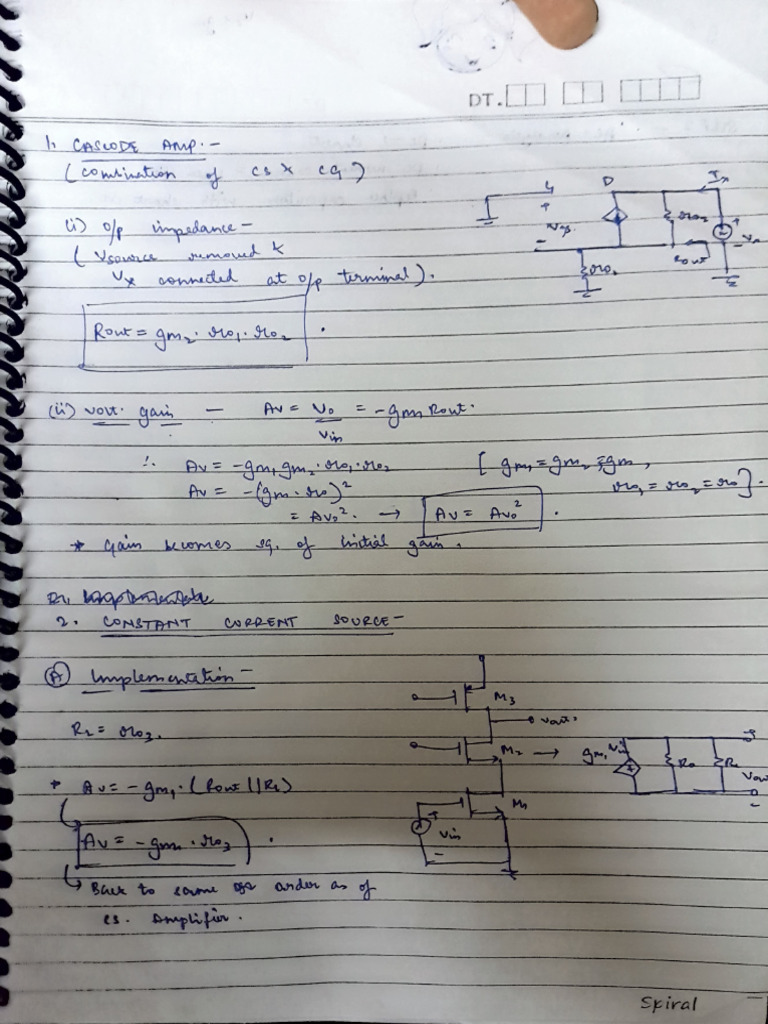 DT.
1. CASCODE AMP.-
(combination of CS X CG)
(i) o/p impedance -
(Vsource removed &
Vx connected at o/p terminal).
G D Ix
+ Vgs -
ro2
+ Vx -
Rout
ro1
Rout = gm2 . ro1 . ro2 .
(ii) volt. gain - Av = Vo/Vin = -gm1 Rout.
∴ Av = -gm1 gm2 . ro1 . ro2 [gm1 = gm2 = gm,
Av = -(gm . ro)² ro1 = ro2 = ro].
= Avo². → Av = Avo² .
* Gain becomes sq. of initial gain.
2. CONSTANT CURRENT SOURCE -
(A) Implementation -
M3
RL = ro3. Vout.
M2 → gm1 Vin Ro RL Vout
* Av = -gm1 . (Rout || RL)
M1
Vin + -
Av = -gm1 . ro3 .
↳ Back to same order as of
CS. Amplifier.
Spiral